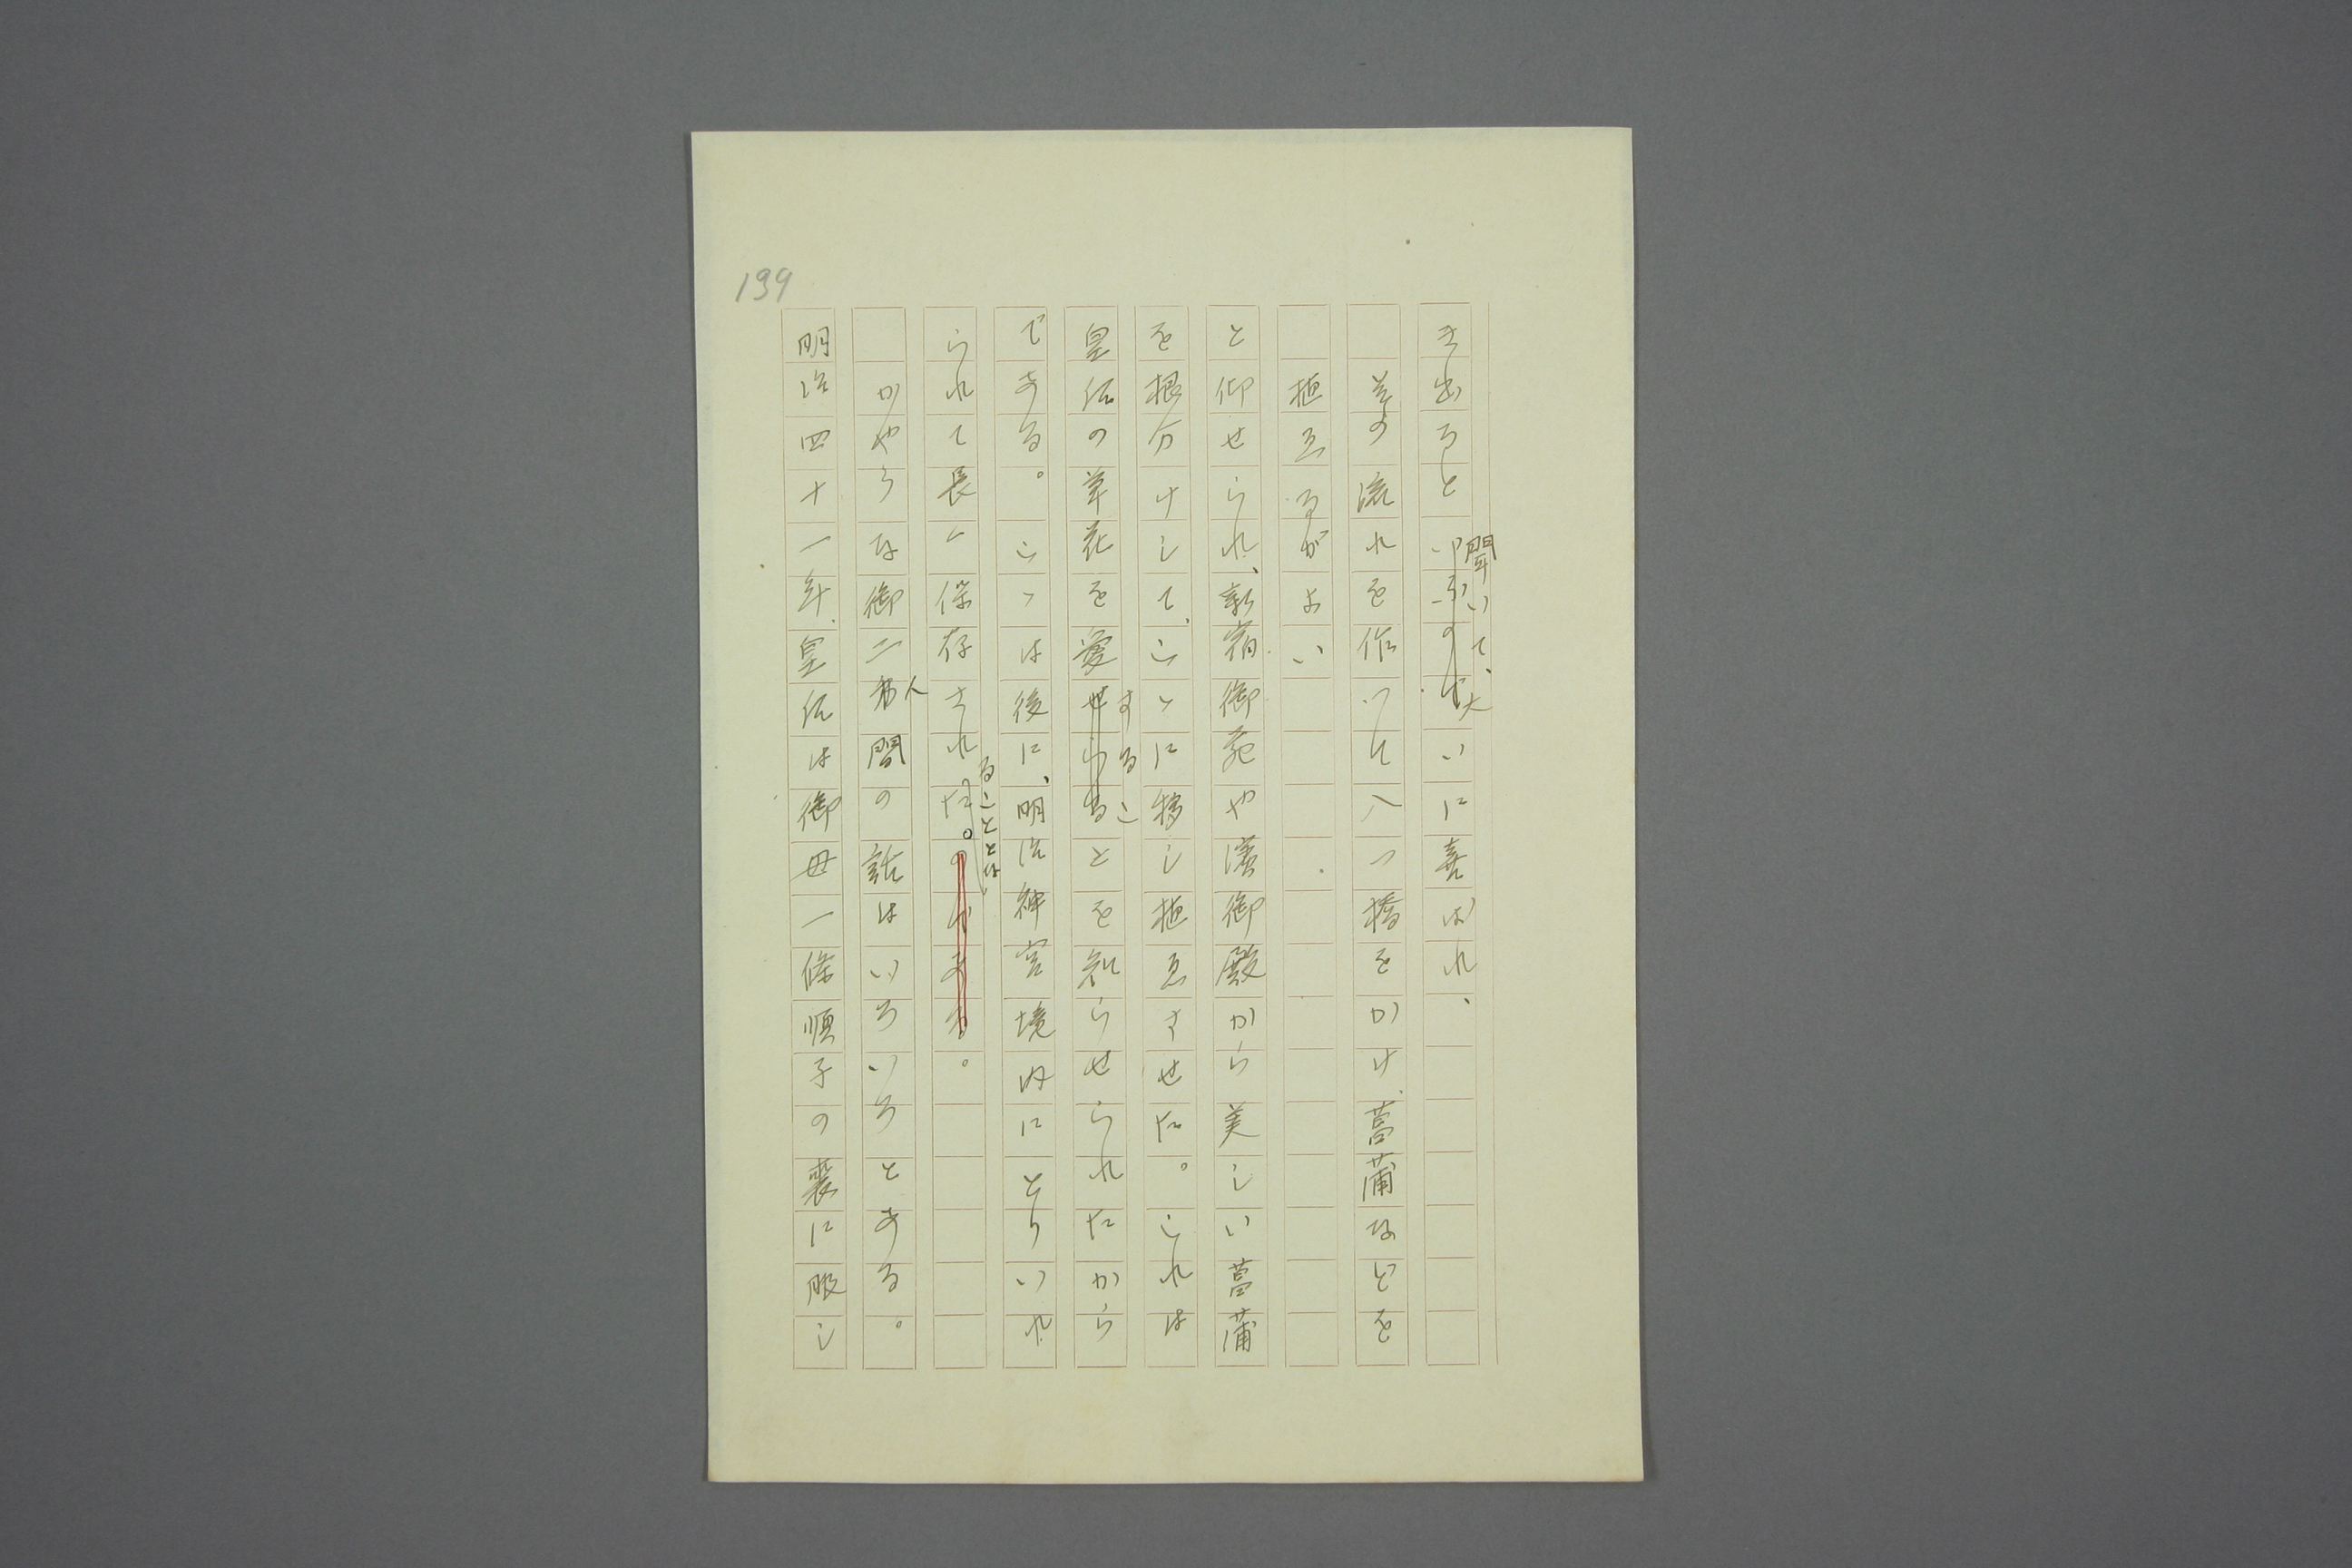 199
き出ると聞いて、大いに喜ばれ、
その流れを作つて八つ橋をかけ、菖蒲などを
植ゑるがよい
と仰せられ、新宿御苑や濱御殿から美しい菖蒲
を根分けして、こゝに移し植ゑさせた。これは
皇后の草花を愛することを知らせられたから
である。こゝは後に、明治神宮境内にとりいれ
られて長く保存されることとなつた。
かやうな御二人の間の話はいろいろとある。
明治四十一年、皇后は御母一條順子の喪に服し